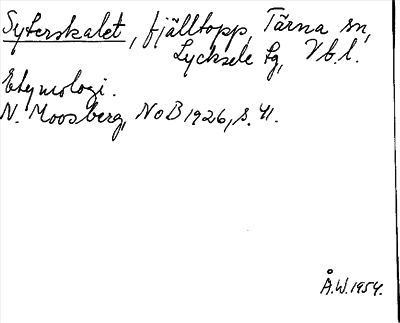 Syterskalet, fjälltopp, Tärna sn,
Lycksele lg, Vb.l.
Etymologi.
N. Moosberg, NoB 1926, s. 41.
Å.W. 1954.